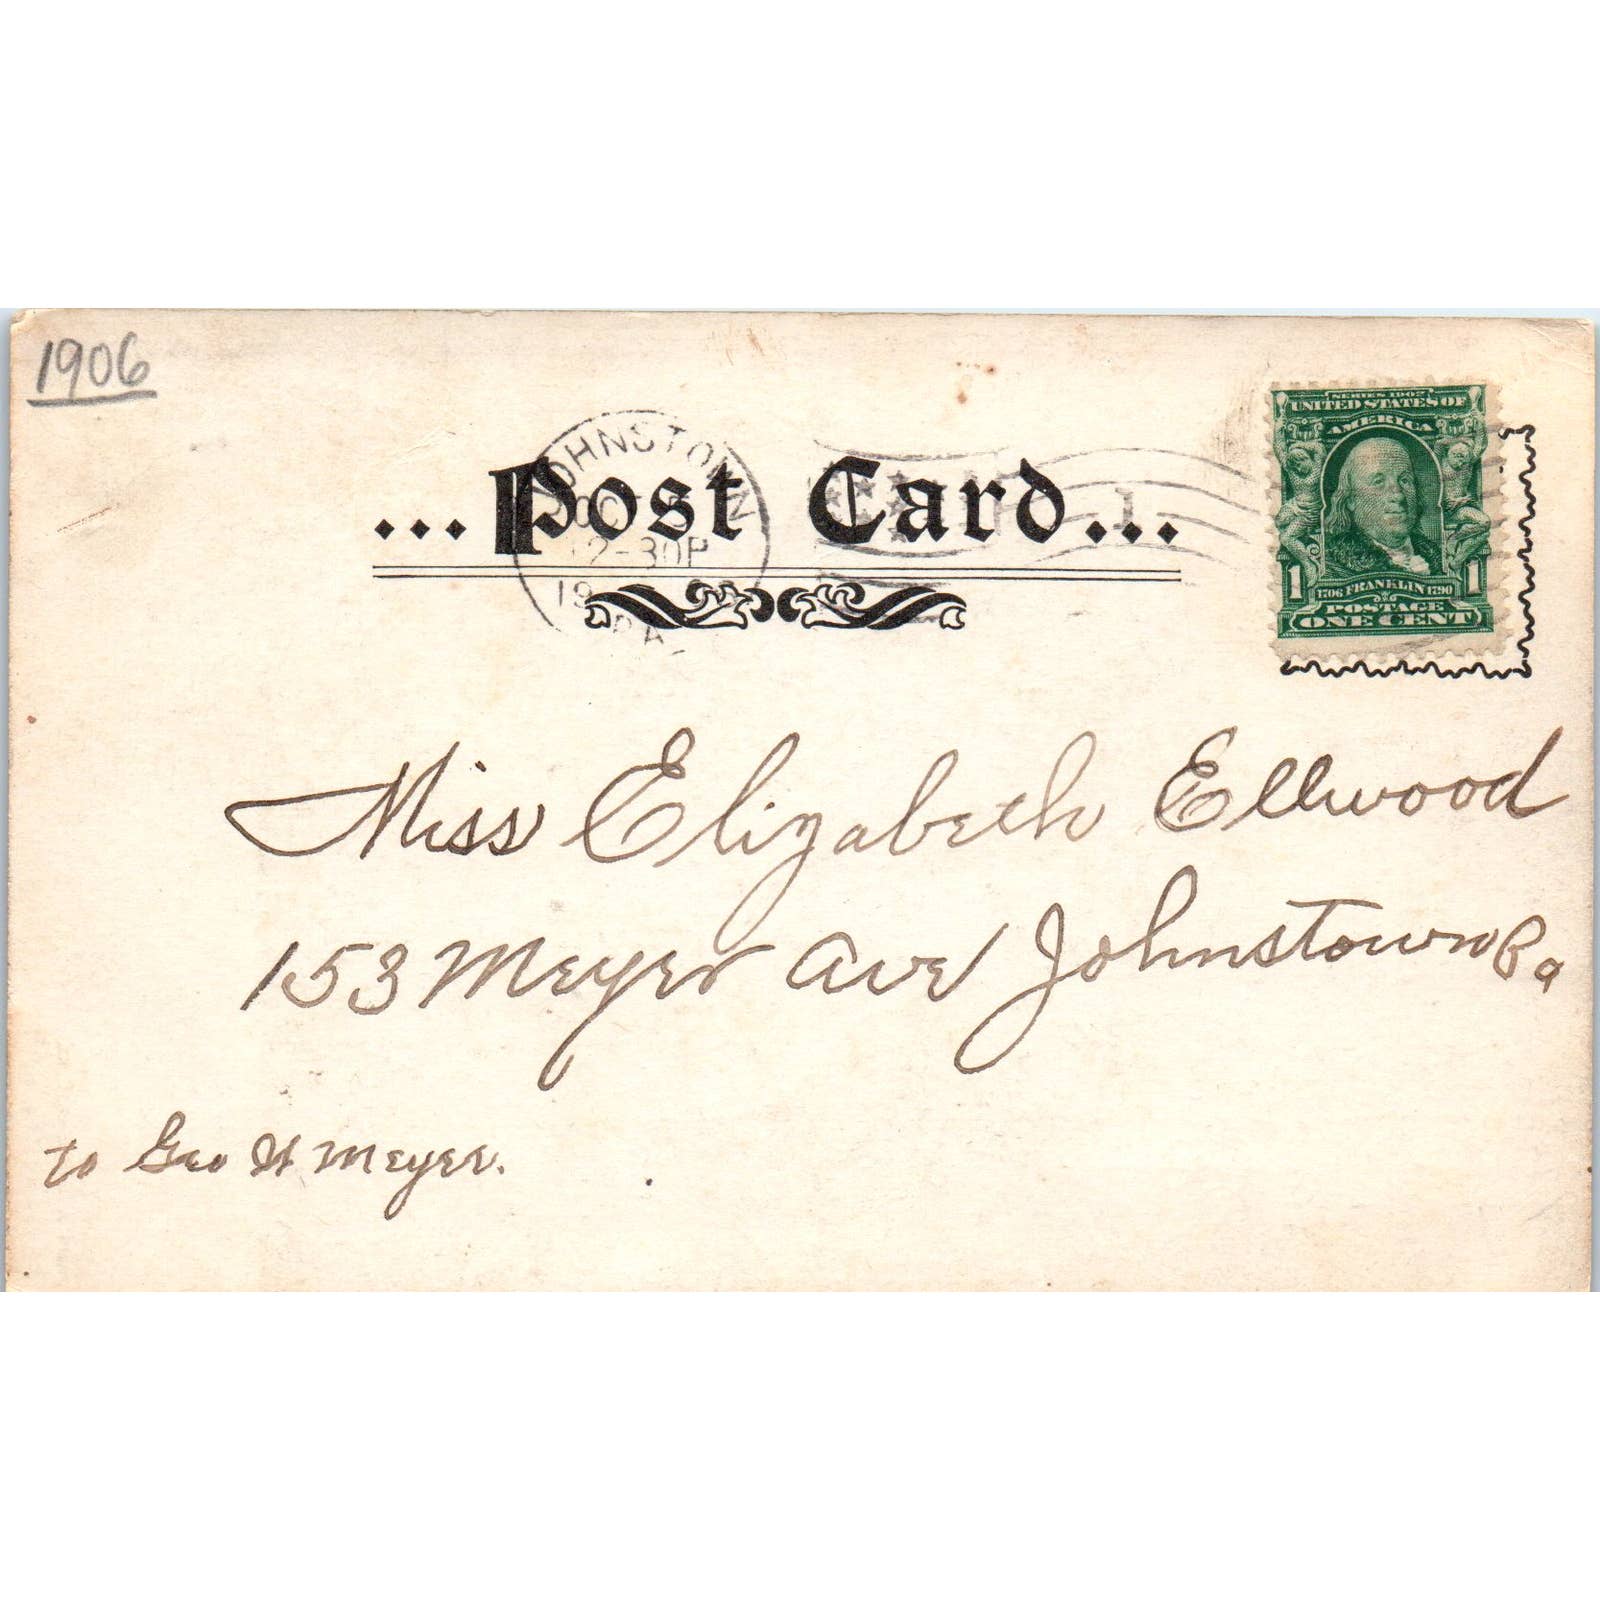 1906
JOHNSTOWN
OCT 5
12-30P
19
PA
... Post Card ...
1
SERIES 1902
UNITED STATES OF
AMERICA
1 1706 FRANKLIN 1790 1
POSTAGE
ONE CENT
Miss Elizabeth Ellwood
153 Meyer Ave Johnstown Pa
to Geo H Meyer.